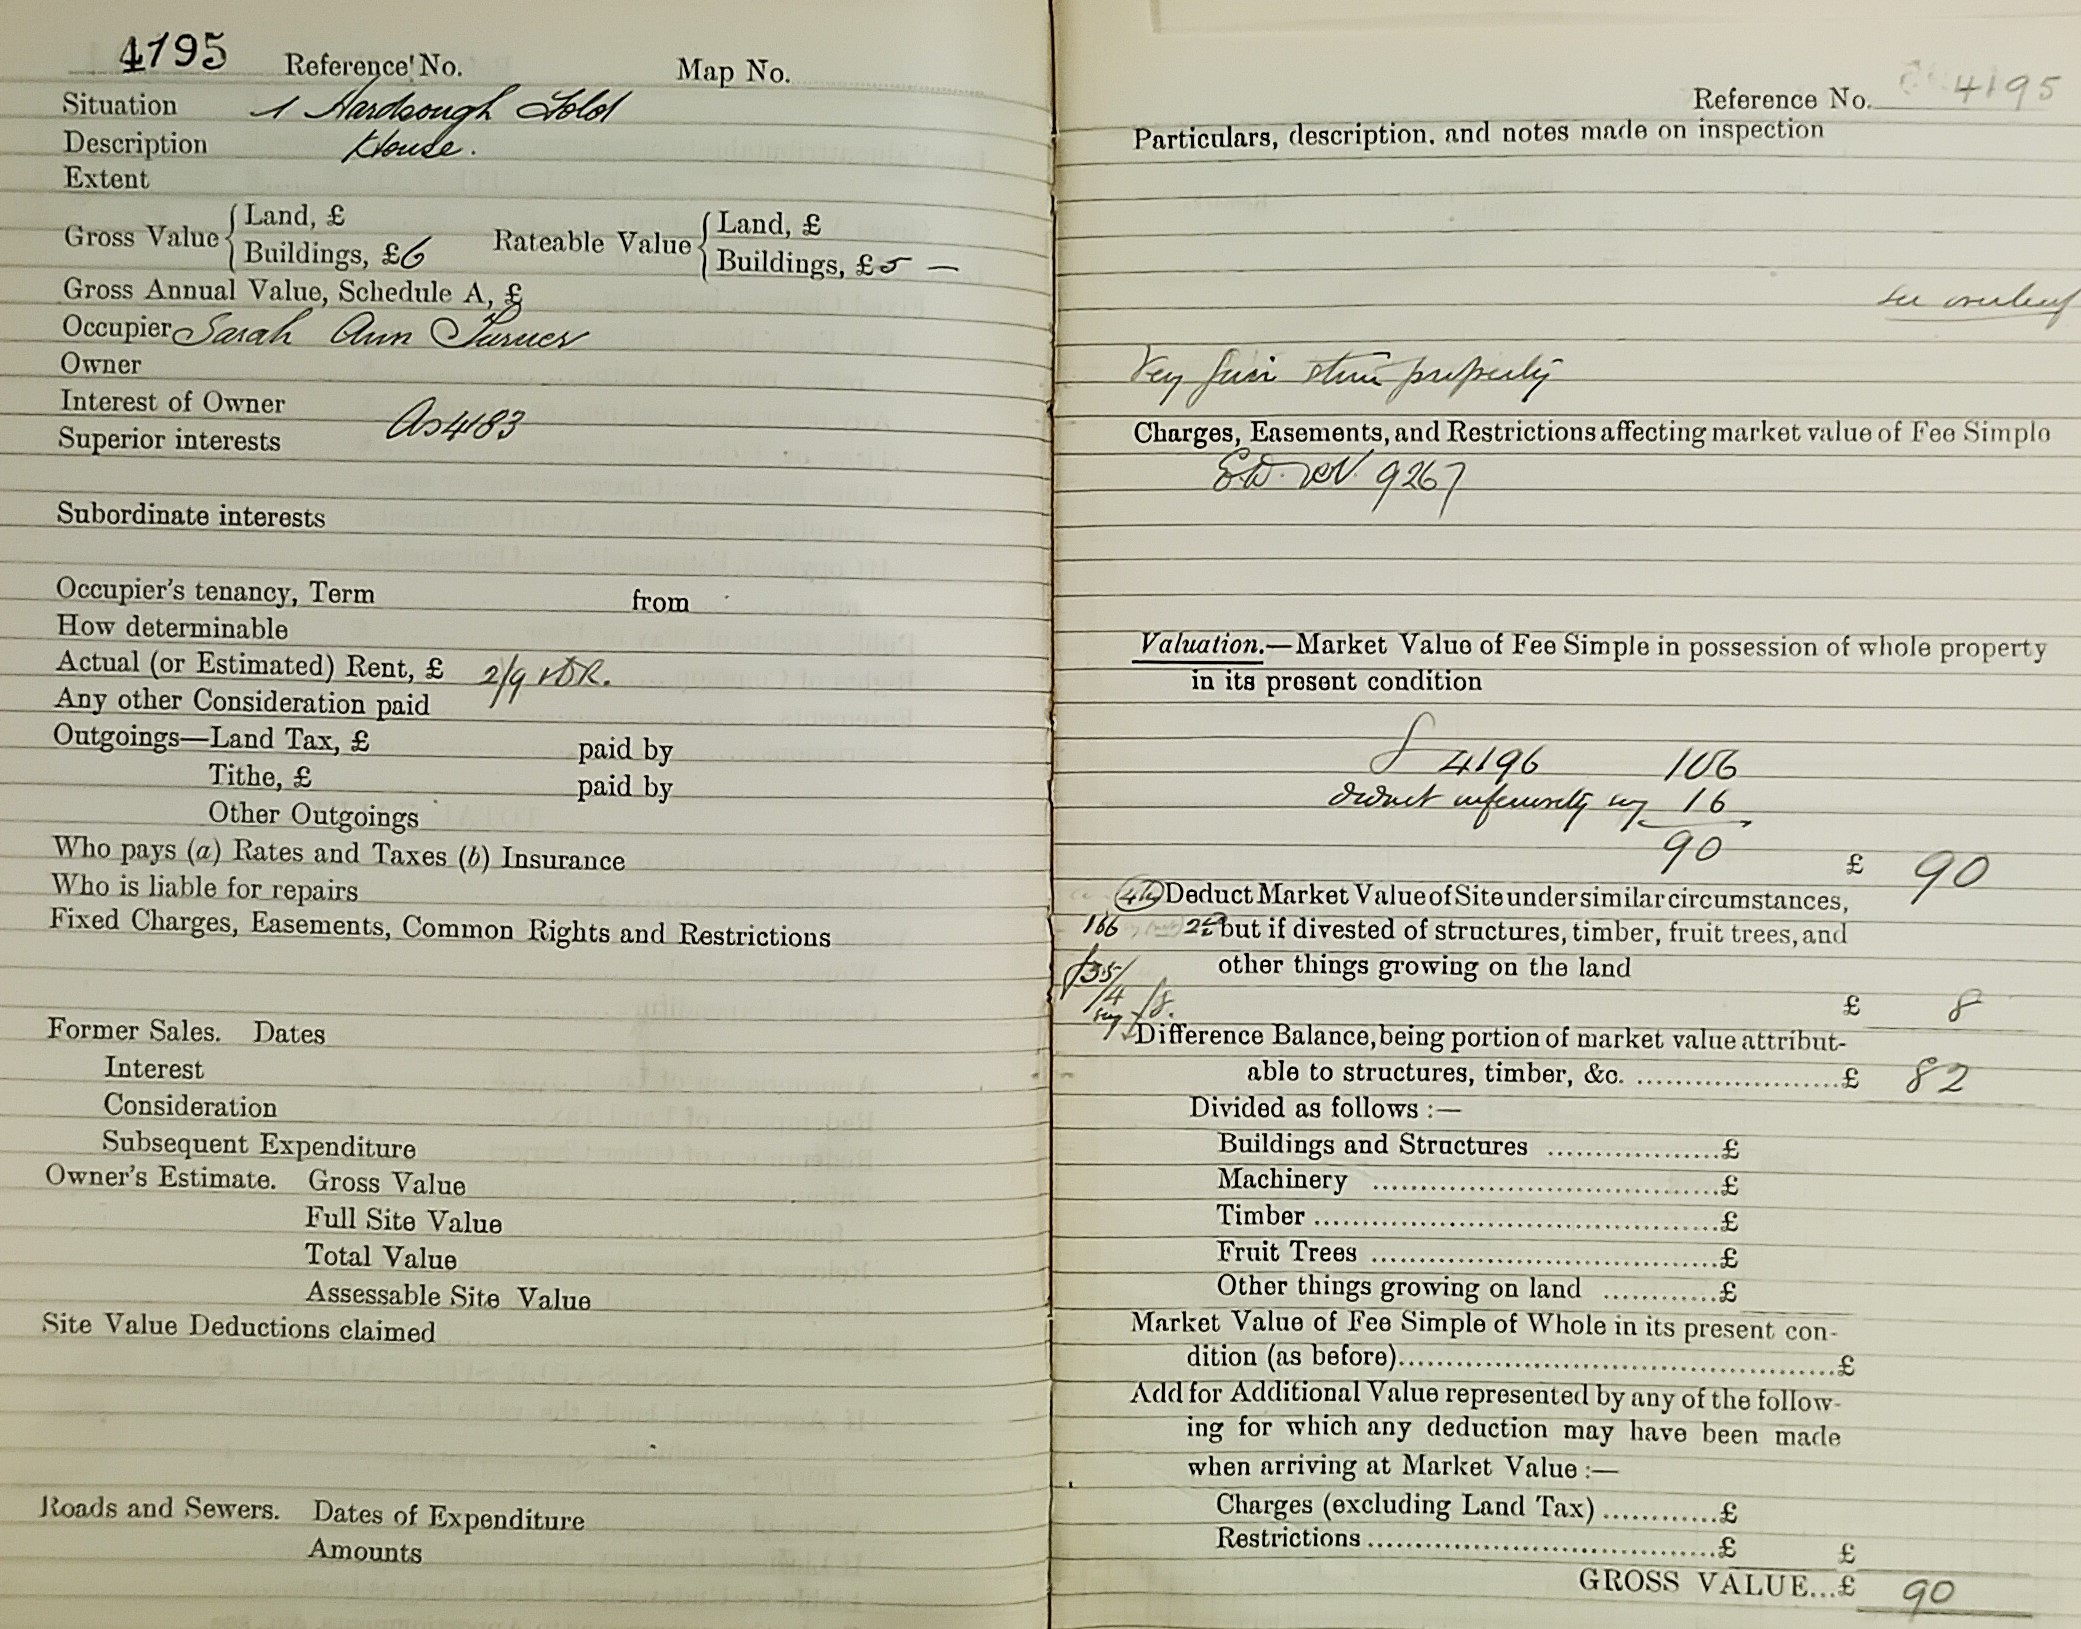 4195 Reference No. Map No.
Situation 1 Hardsough Fold
Description House.
Extent
Gross Value { Land, £
Buildings, £6 Rateable Value { Land, £
Buildings, £5 —
Gross Annual Value, Schedule A, £
Occupier Sarah Ann Turner
Owner
Interest of Owner
As 4183
Superior interests
Subordinate interests
Occupier's tenancy, Term from
How determinable
Actual (or Estimated) Rent, £ 2/9
Any other Consideration paid
Outgoings—Land Tax, £ paid by
Tithe, £ paid by
Other Outgoings
Who pays (a) Rates and Taxes (b) Insurance
Who is liable for repairs
Fixed Charges, Easements, Common Rights and Restrictions
Former Sales. Dates
Interest
Consideration
Subsequent Expenditure
Owner's Estimate. Gross Value
Full Site Value
Total Value
Assessable Site Value
Site Value Deductions claimed
Roads and Sewers. Dates of Expenditure
Amounts
Reference No. 4195
Particulars, description, and notes made on inspection
see overleaf
Very fair stone property
Charges, Easements, and Restrictions affecting market value of Fee Simple
9267
Valuation.—Market Value of Fee Simple in possession of whole property
in its present condition
4196 106
deduct inferiority say 16
90
£ 90
Deduct Market Value of Site under similar circumstances,
166 but if divested of structures, timber, fruit trees, and
other things growing on the land
£ 8
say
Difference Balance, being portion of market value attribut-
able to structures, timber, &c. ....................£ 82
Divided as follows :—
Buildings and Structures .................£
Machinery ..................................£
Timber .......................................£
Fruit Trees ..................................£
Other things growing on land ............£
Market Value of Fee Simple of Whole in its present con-
dition (as before)..........................................£
Add for Additional Value represented by any of the follow-
ing for which any deduction may have been made
when arriving at Market Value :—
Charges (excluding Land Tax) ............£
Restrictions ..................................£ £
GROSS VALUE...£ 90